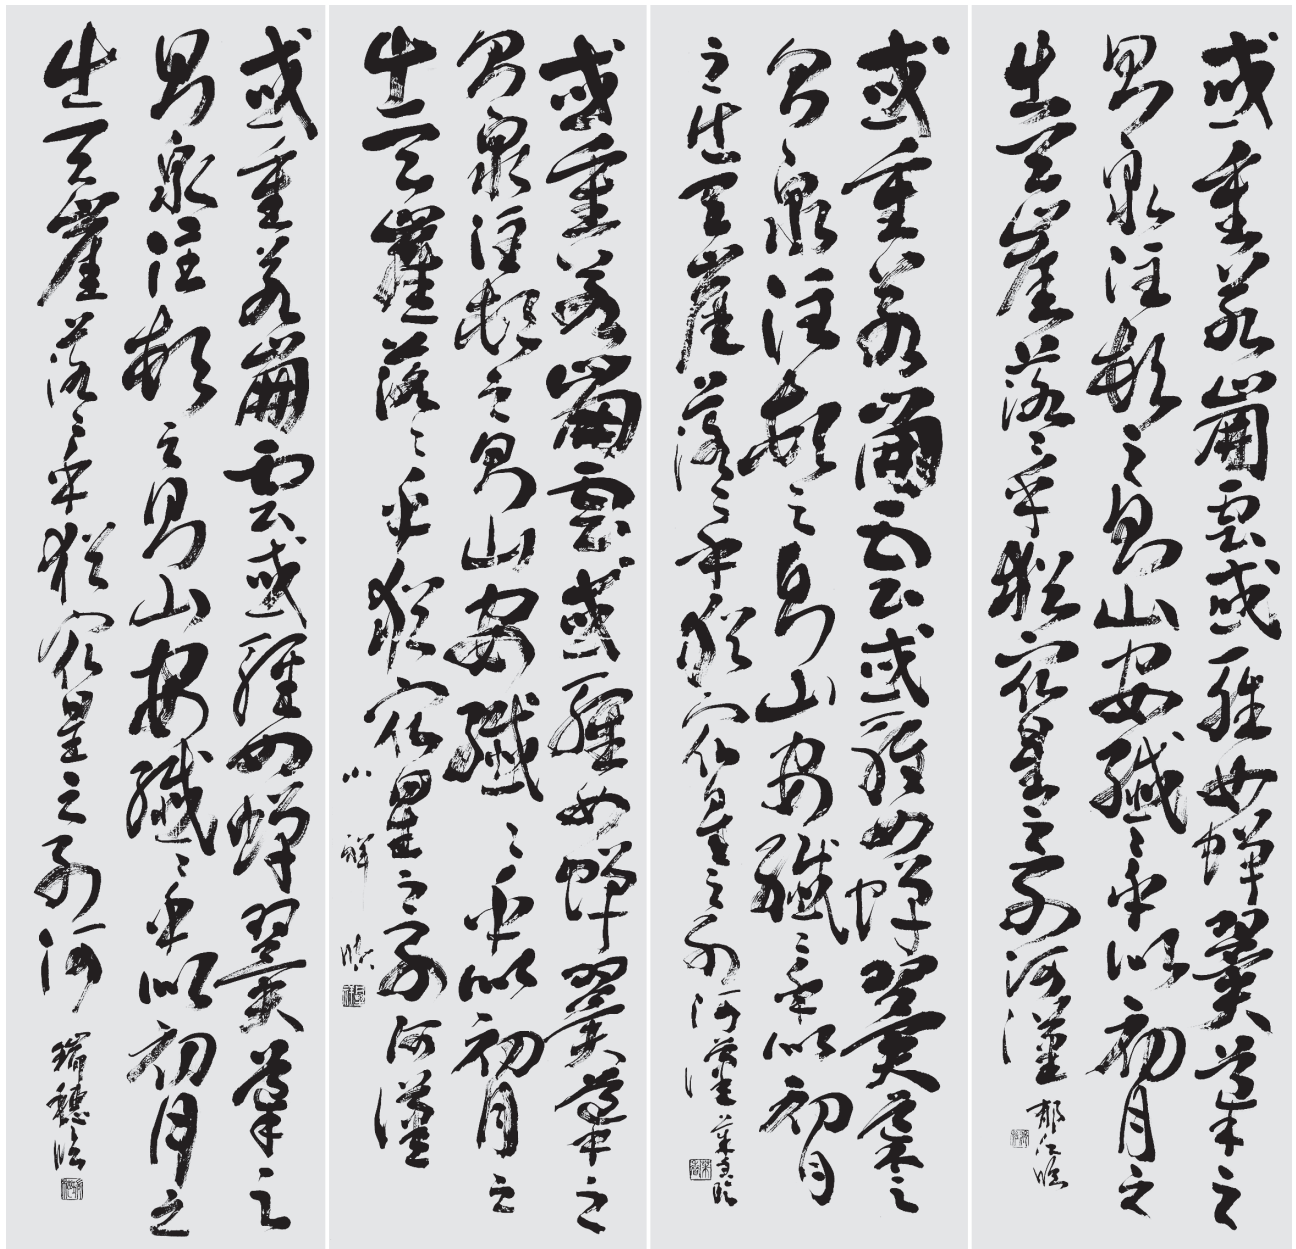 或重若崩雲或輕如蟬翼導之
則泉注頓之則山安纖〻乎似初月之
出天崖落〻乎猶眾星之列河漢 郁仁臨
或重若崩雲或輕如蟬翼導之
則泉注頓之則山安纖〻乎似初月
之出天崖落〻乎猶眾星之列河漢 臨
或重若崩雲或輕如蟬翼導之
則泉注頓之則山安纖〻乎似初月之
出天崖落〻乎猶眾星之列河漢
小祥臨
或重若崩雲或輕如蟬翼導之
則泉注頓之則山安纖〻乎似初月之
出天崖落〻乎猶眾星之列河 瑞穗臨